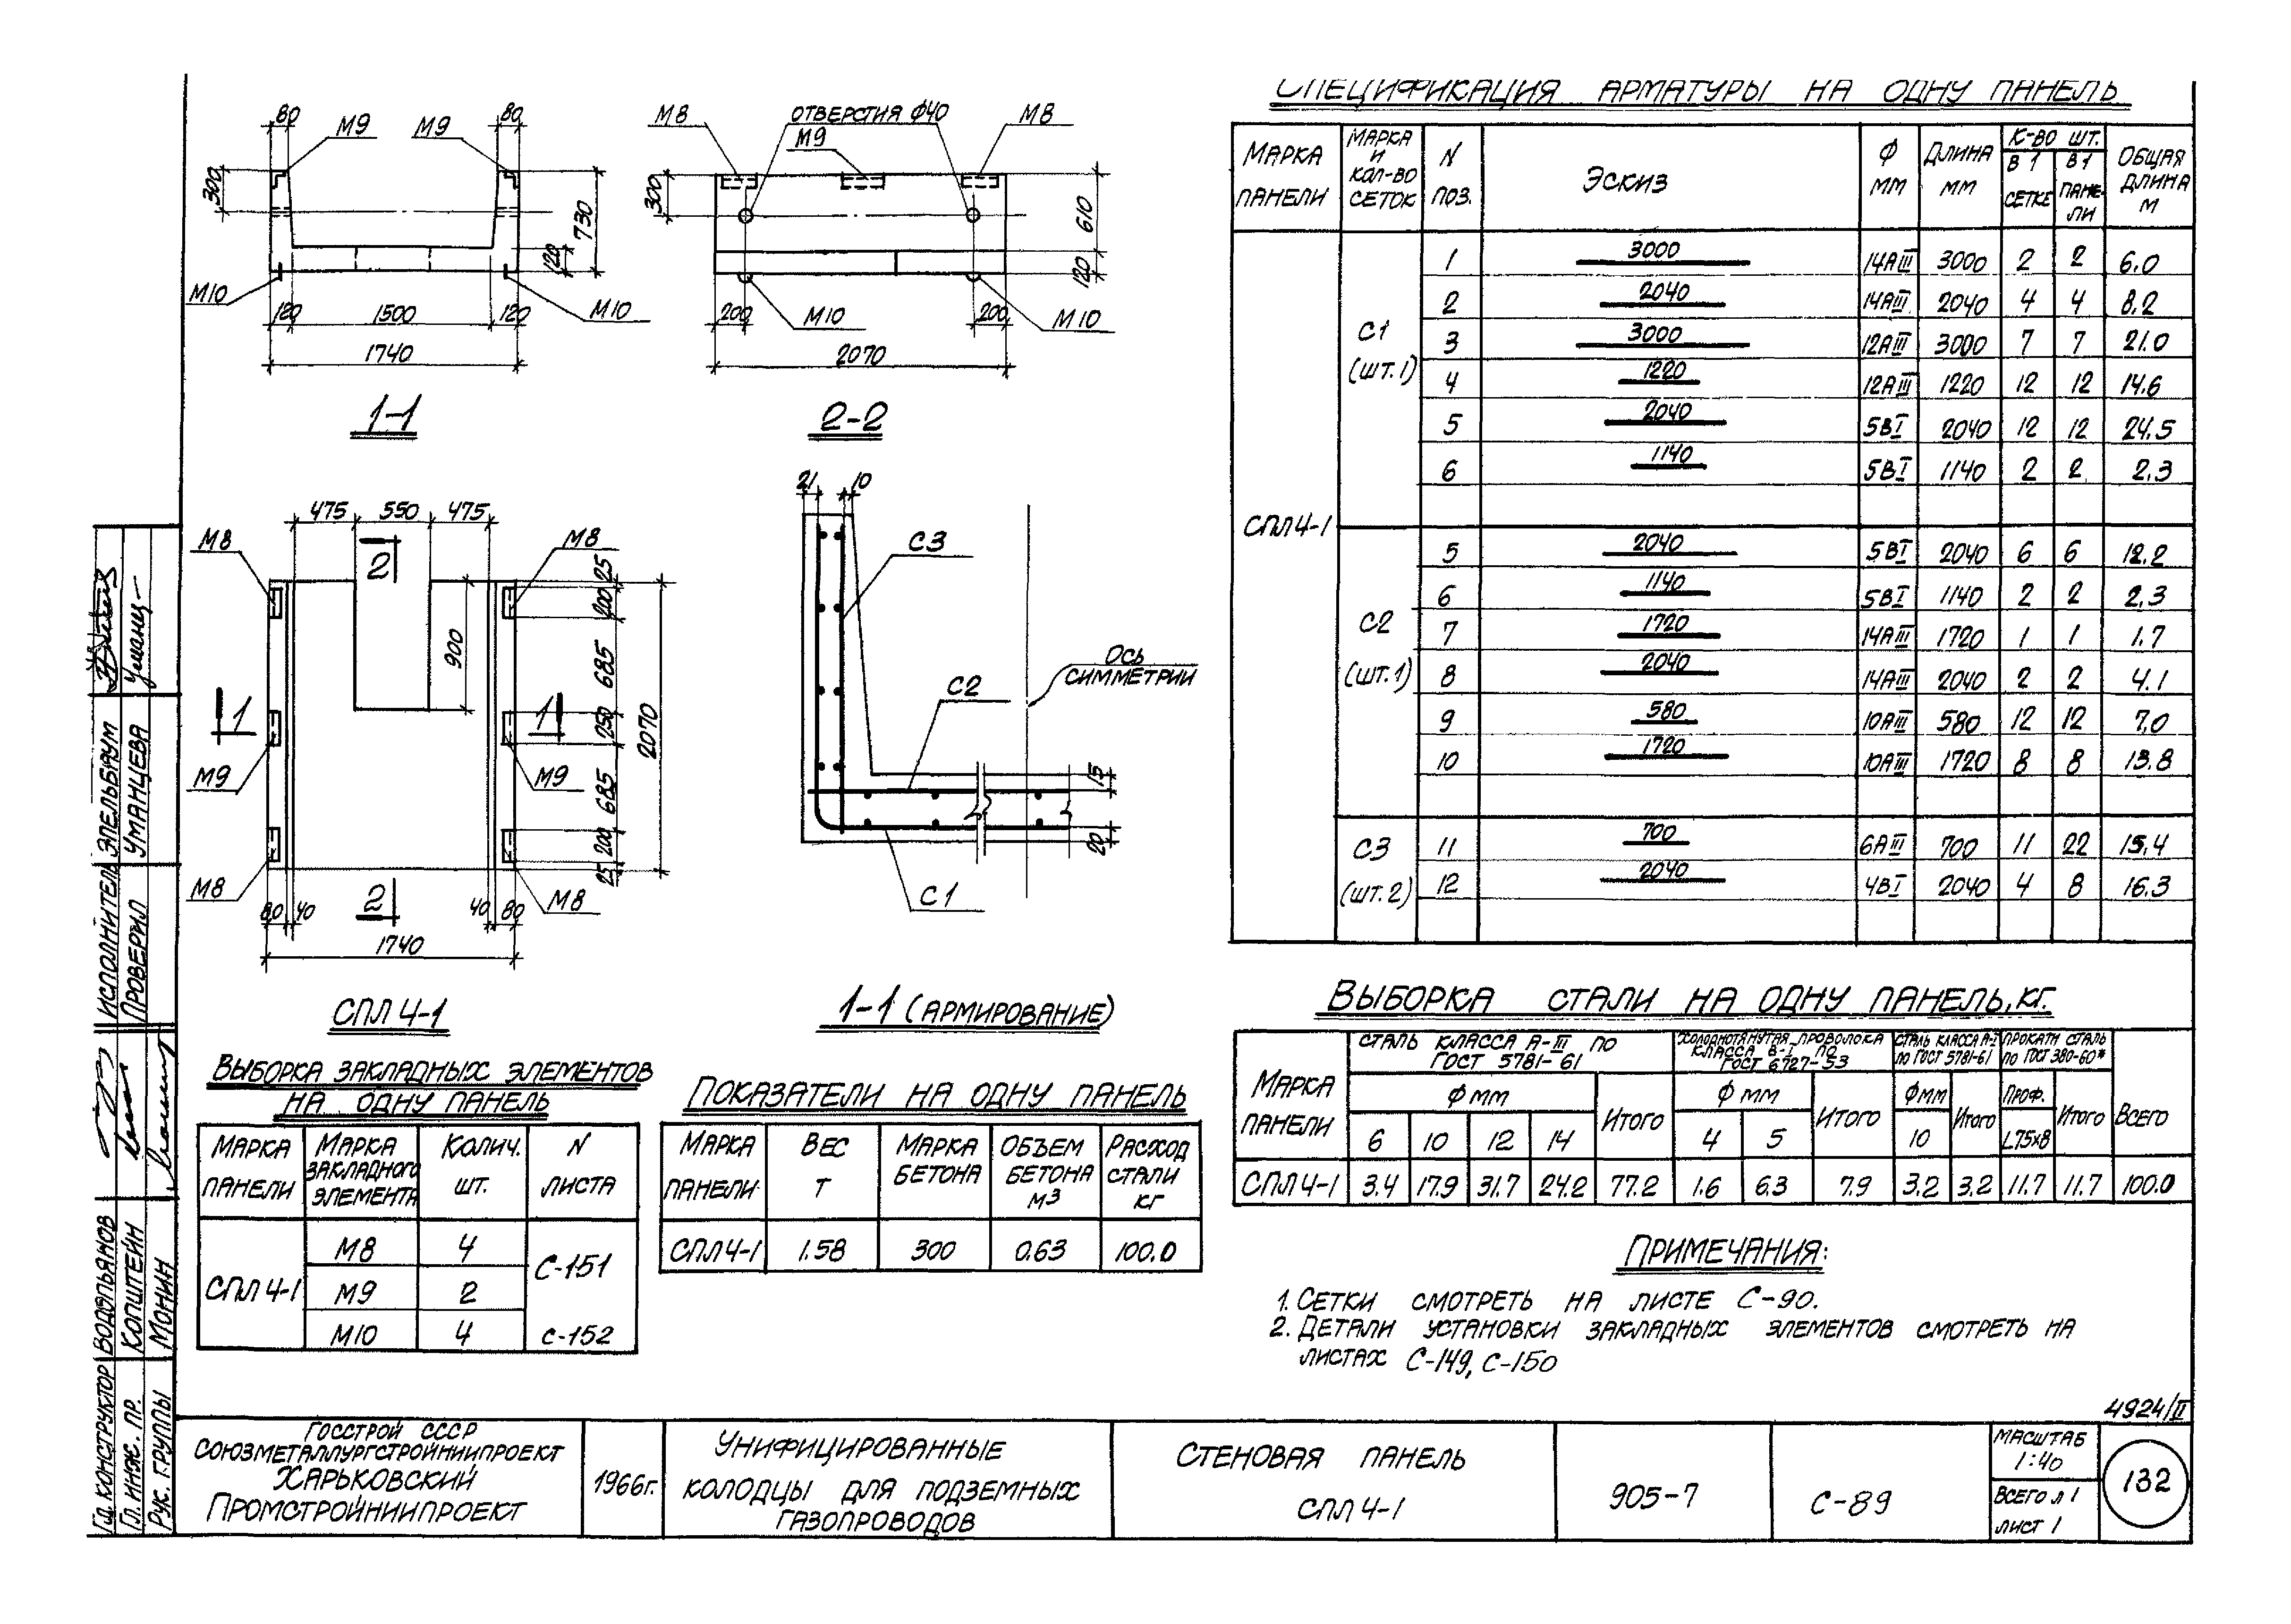 80
М9
М9
80
300
730
120
М10
М10
120
1500
120
1740
1-1
М8
ОТВЕРСТИЯ Ф40
М9
М8
300
610
120
200
М10
200
М10
2070
2-2
475
550
475
М8
М8
2
25
200
685
900
1
1
250
2070
М9
М9
685
200
25
М8
М8
2
80
40
40
80
1740
СПЛ 4-1
21
10
С3
ОСЬ
СИММЕТРИИ
С2
15
20
С1
1-1 (АРМИРОВАНИЕ)
СПЕЦИФИКАЦИЯ АРМАТУРЫ НА ОДНУ ПАНЕЛЬ
МАРКА ПАНЕЛИ | МАРКА И КОЛ-ВО СЕТОК | N ПОЗ. | ЭСКИЗ | Ф ММ | ДЛИНА ММ | К-ВО ШТ. В 1 СЕТКЕ | В 1 ПАНЕ-ЛИ | ОБЩАЯ ДЛИНА М
СПЛ 4-1
С1 (ШТ.1)
1 3000 14АIII 3000 2 2 6.0
2 2040 14АIII 2040 4 4 8.2
3 3000 12АIII 3000 7 7 21.0
4 1220 12АIII 1220 12 12 14.6
5 2040 5ВI 2040 12 12 24.5
6 1140 5ВI 1140 2 2 2.3
С2 (ШТ.1)
5 2040 5ВI 2040 6 6 12.2
6 1140 5ВI 1140 2 2 2.3
7 1720 14АIII 1720 1 1 1.7
8 2040 14АIII 2040 2 2 4.1
9 580 10АIII 580 12 12 7.0
10 1720 10АIII 1720 8 8 13.8
С3 (ШТ.2)
11 700 6АIII 700 11 22 15.4
12 2040 4ВI 2040 4 8 16.3
ВЫБОРКА СТАЛИ НА ОДНУ ПАНЕЛЬ, КГ.
МАРКА ПАНЕЛИ
СТАЛЬ КЛАССА А-III ПО ГОСТ 5781-61
ХОЛОДНОТЯНУТАЯ ПРОВОЛОКА КЛАССА В-I ПО ГОСТ 6727-53
СТАЛЬ КЛАССА А-I ПО ГОСТ 5781-61
ПРОКАТН СТАЛЬ ПО ГОСТ 380-60*
Ф ММ ИТОГО Ф ММ ИТОГО Ф ММ ИТОГО ПРОФ. ИТОГО ВСЕГО
6 10 12 14 4 5 10 L75х8
СПЛ 4-1 3.4 17.9 31.7 24.2 77.2 1.6 6.3 7.9 3.2 3.2 11.7 11.7 100.0
ВЫБОРКА ЗАКЛАДНЫХ ЭЛЕМЕНТОВ
НА ОДНУ ПАНЕЛЬ
МАРКА ПАНЕЛИ | МАРКА ЗАКЛАДНОГО ЭЛЕМЕНТА | КОЛИЧ. ШТ. | N ЛИСТА
СПЛ 4-1
М8 4 С-151
М9 2
М10 4 С-152
ПОКАЗАТЕЛИ НА ОДНУ ПАНЕЛЬ
МАРКА ПАНЕЛИ | ВЕС Т | МАРКА БЕТОНА | ОБЪЕМ БЕТОНА М3 | РАСХОД СТАЛИ КГ
СПЛ 4-1 1.58 300 0.63 100.0
ПРИМЕЧАНИЯ:
1. СЕТКИ СМОТРЕТЬ НА ЛИСТЕ С-90.
2. ДЕТАЛИ УСТАНОВКИ ЗАКЛАДНЫХ ЭЛЕМЕНТОВ СМОТРЕТЬ НА
ЛИСТАХ С-149, С-150
4924/II
ГОССТРОЙ СССР
СОЮЗМЕТАЛЛУРГСТРОЙНИИПРОЕКТ
ХАРЬКОВСКИЙ
ПРОМСТРОЙНИИПРОЕКТ
1966г.
УНИФИЦИРОВАННЫЕ
КОЛОДЦЫ ДЛЯ ПОДЗЕМНЫХ
ГАЗОПРОВОДОВ
СТЕНОВАЯ ПАНЕЛЬ
СПЛ 4-1
905-7
С-89
МАСШТАБ
1:40
ВСЕГО Л 1
ЛИСТ 1
132
ГЛ. КОНСТРУКТОР ВОДОПЬЯНОВ
ГЛ. ИНЖ. ПР. КОПШТЕЙН
РУК. ГРУППЫ МОНИН
ИСПОЛНИТЕЛЬ ЭПЕЛЬБАУМ
ПРОВЕРИЛ УМАНЦЕВА